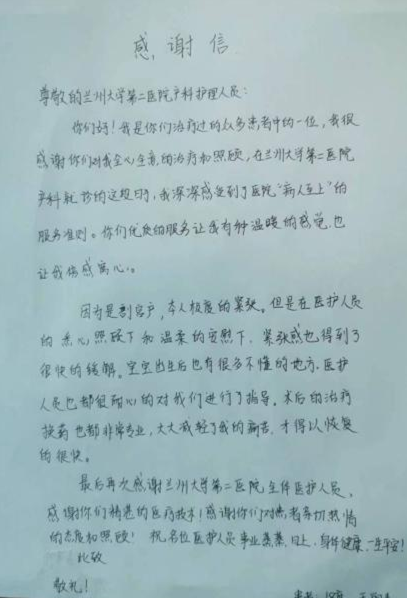 感谢信
尊敬的兰州大学第二医院产科护理人员:
你们好!我是你们治疗过的众多患者中的一位,我很
感谢你们对我全心全意的治疗和照顾,在兰州大学第二医院
产科就诊的这段日子,我深深感受到了医院“病人至上”的
服务准则。你们优质的服务让我有种温暖的感觉,也
让我倍感窝心。
因为是剖宫产,本人极度的紧张。但是在医护人员
的悉心照顾下和温柔的安慰下,紧张感也得到了
很快的缓解。宝宝出生后也有很多不懂的地方,医护
人员也都很耐心的对我们进行了指导。术后的治疗
换药也都非常专业,大大减轻了我的痛苦,才得以恢复
的很快。
最后再次感谢兰州大学第二医院全体医护人员,
感谢你们精湛的医疗技术!感谢你们对患者亲切热情
的态度和照顾!祝各位医护人员事业蒸蒸日上,身体健康,一生平安!
此致
敬礼!